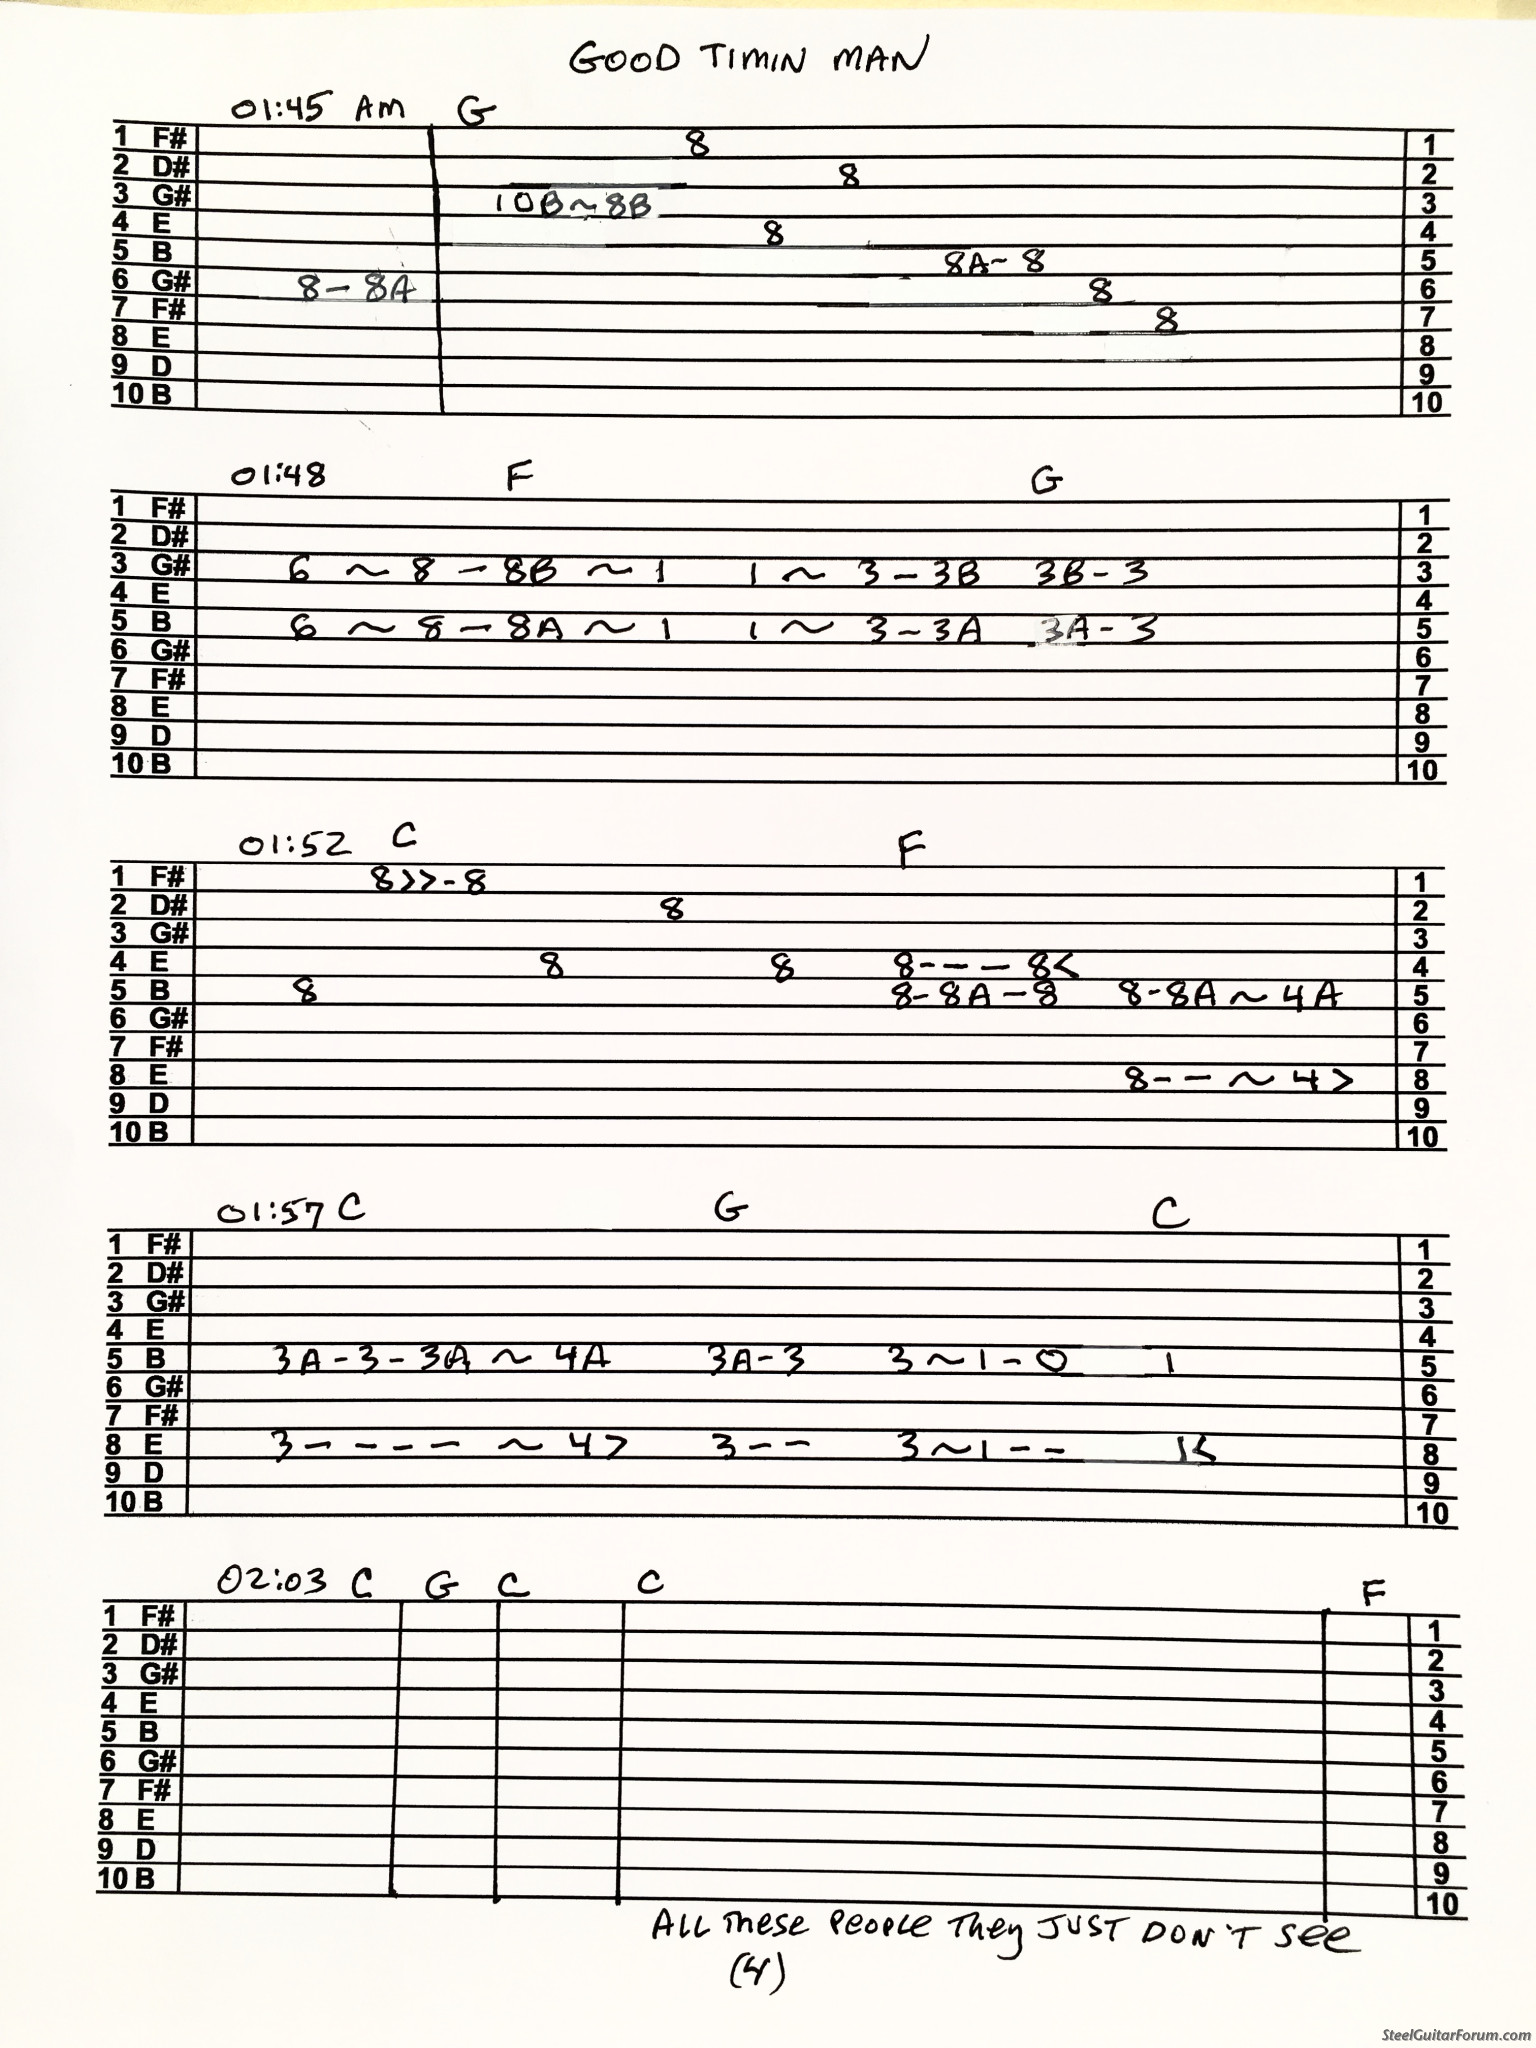 GOOD TIMIN MAN
01:45 Am G
1 F# 8 1
2 D# 8 2
3 G# 10B~8B 3
4 E 8 4
5 B 8A~8 5
6 G# 8-8A 8 6
7 F# 8 7
8 E 8
9 D 9
10 B 10
01:48 F G
1 F# 1
2 D# 2
3 G# 6 ~ 8 - 8B ~ 1 1 ~ 3 - 3B 3B - 3 3
4 E 4
5 B 6 ~ 8 - 8A ~ 1 1 ~ 3 - 3A 3A - 3 5
6 G# 6
7 F# 7
8 E 8
9 D 9
10 B 10
01:52 C F
1 F# 8>>-8 1
2 D# 8 2
3 G# 3
4 E 8 8 8- - - 8< 4
5 B 8 8-8A-8 8-8A~4A 5
6 G# 6
7 F# 7
8 E 8- - ~ 4> 8
9 D 9
10 B 10
01:57 C G C
1 F# 1
2 D# 2
3 G# 3
4 E 4
5 B 3A-3-3A ~ 4A 3A-3 3~1-0 1 5
6 G# 6
7 F# 7
8 E 3- - - - ~ 4> 3- - 3~1- - 1< 8
9 D 9
10 B 10
02:03 C G C C F
1 F# 1
2 D# 2
3 G# 3
4 E 4
5 B 5
6 G# 6
7 F# 7
8 E 8
9 D 9
10 B 10
ALL These PEOPLE They JUST DON'T See
(4)
SteelGuitarForum.com